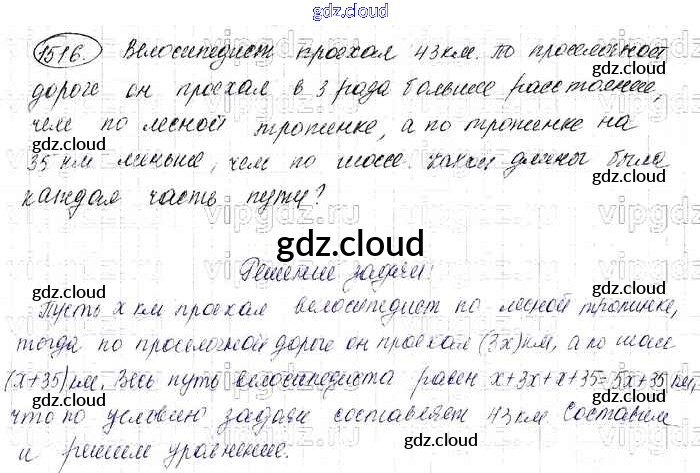 gdz.cloud
1516. Велосипедист проехал 43 км. По проселочной
дороге он проехал в 3 рада большее расстояние,
чем по лесной тропинке, а по тропинке на
35 км меньше, чем по шоссе. Какой длины была
каждая часть пути?
gdz.cloud
gdz.cloud
gdz.cloud
Решение задачи
gdz.cloud
gdz.cloud
Пусть х км проехал велосипедист по лесной тропинке,
тогда по проселочной дороге он проехал (3х)км, а по шоссе
gdz.cloud
gdz.cloud
(х+35)км. Весь путь велосипедиста равен х+3х+х+35=5х+35(км),
что по условию задачи составляет 43 км. Составим
gdz.cloud
и решим уравнение.
gdz.cloud